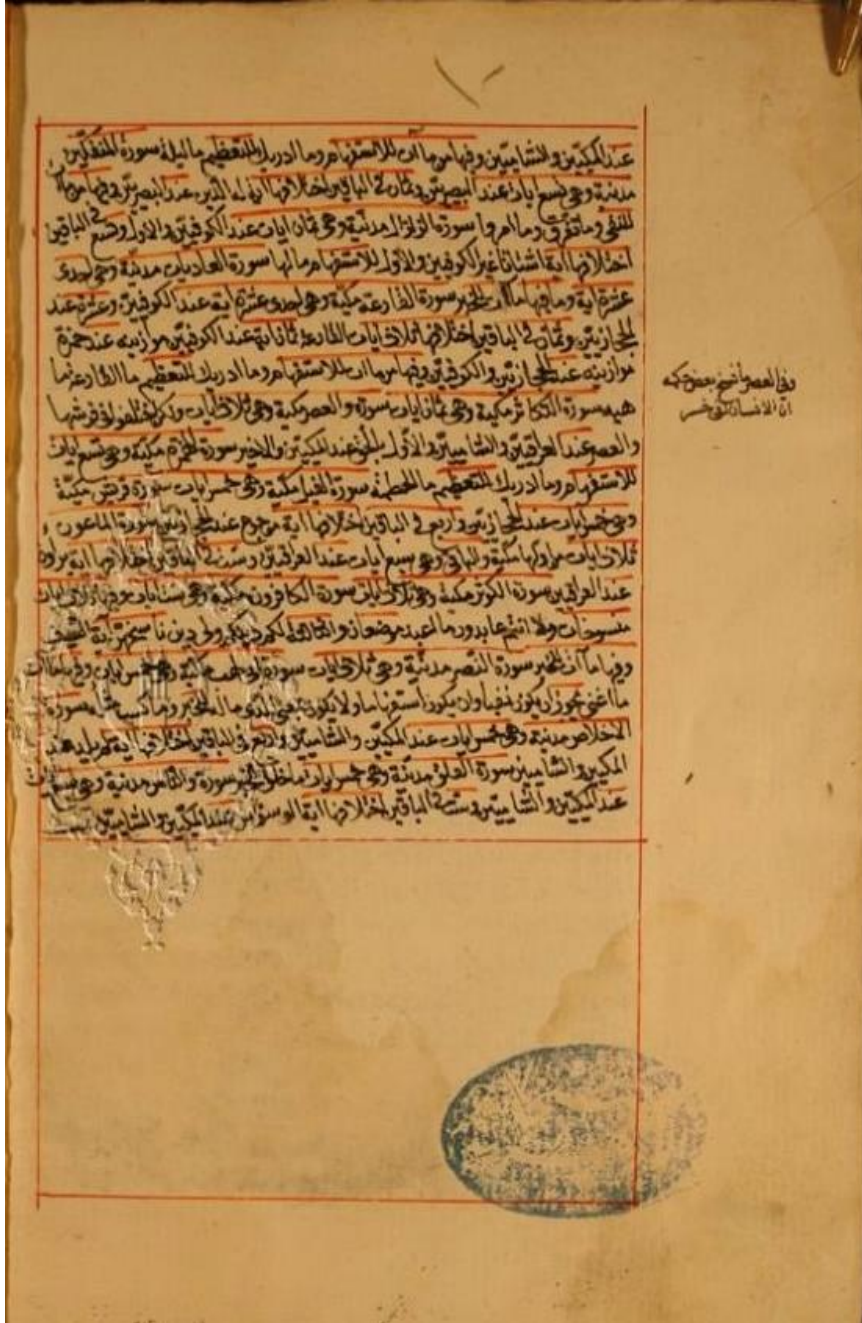 عند المكيين والشاميين وفيها من ما آن للاستفهام وما ادريك للتعظيم ما ليلة سورة المنفكين
مدنية وهي تسع ايات عند البصريين وثمان في الباقين اختلافها اية له الدين عند البصريين وفيها من ما آن
للنفي وما تفرق وما امروا سورة الزلزال مدنية وهي ثمان ايات عند الكوفيين والاول وتسع في الباقين
اختلافها اية اشتاتا غير الكوفيين والاول للاستفهام مالها سورة العاديات مدنية وهي احدى
عشرة اية وما فيها ما آن للخبر سورة القارعة مكية وهي احدى عشرة اية عند الكوفيين وعشرة عند
الحجازيين وثمان في الباقين اختلافها ثلاث ايات القارعة ثمانية عند الكوفيين موازينه عند حمزة
موازينه عند الحجازيين والكوفيين وفيها من ما آن للاستفهام وما ادريك للتعظيم ما القارعة ما
هيه سورة التكاثر مكية وهي ثمان ايات سورة والعصر مكية وهي ثلاث ايات
والعصر عند العراقيين والشاميين والاول بالحق عند المكيين والاخير سورة مكية وهي تسع ايات
للاستفهام وما ادريك للتعظيم ما الحطمة سورة الفيل مكية وهي خمس ايات سورة قريش مكية
وهي خمس ايات عند الحجازيين واربع في الباقين اختلافها اية من جوع عند الحجازيين سورة الماعون
ثلاث ايات من اولها مكية والباقي وهي سبع ايات عند العراقيين وست في الباقين اختلافها اية يراون
عند العراقيين سورة الكوثر مكية وهي ثلاث ايات سورة الكافرون مكية وهي ست ايات وفيها ثلاث ايات
منسوخات ولا انتم عابدون ما اعبد موضعان والثالث لكم دينكم ولي دين ناسخهن آية السيف
وفيها ما آن للخبر سورة النصر مدنية وهي ثلاث ايات سورة مكية وهي خمس ايات وفيها ما آن
ما اغنى يجوز ان يكون نفيا وان يكون استفهاما ولا يكون بمعنى الذي ماله للخبر وما كسب مثله سورة
الاخلاص مدنية وهي خمس ايات عند المكيين والشاميين واربع في الباقين اختلافها اية لم يلد عند
المكيين والشاميين سورة الفلق مدنية وهي خمس ايات ما خلق للخبر سورة والناس مدنية وهي سبع ايات
عند المكيين والشاميين وست في الباقين اختلافها اية الوسواس عند المكيين والشاميين تمت
وفي العصر ما نسخ بعض حكمه
ان الانسان لفي خسر